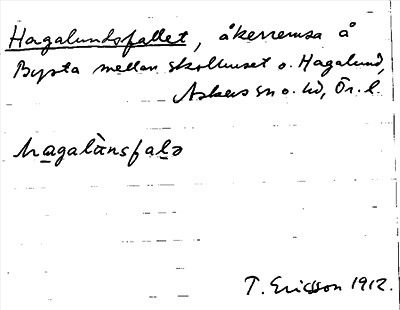 Hagalundsfallet, åkerremsa å
Bysta mellan skolhuset o. Hagalund,
Askers sn o. hd, Ör. l.
hagalànsfalə
T. Ericsson 1912.